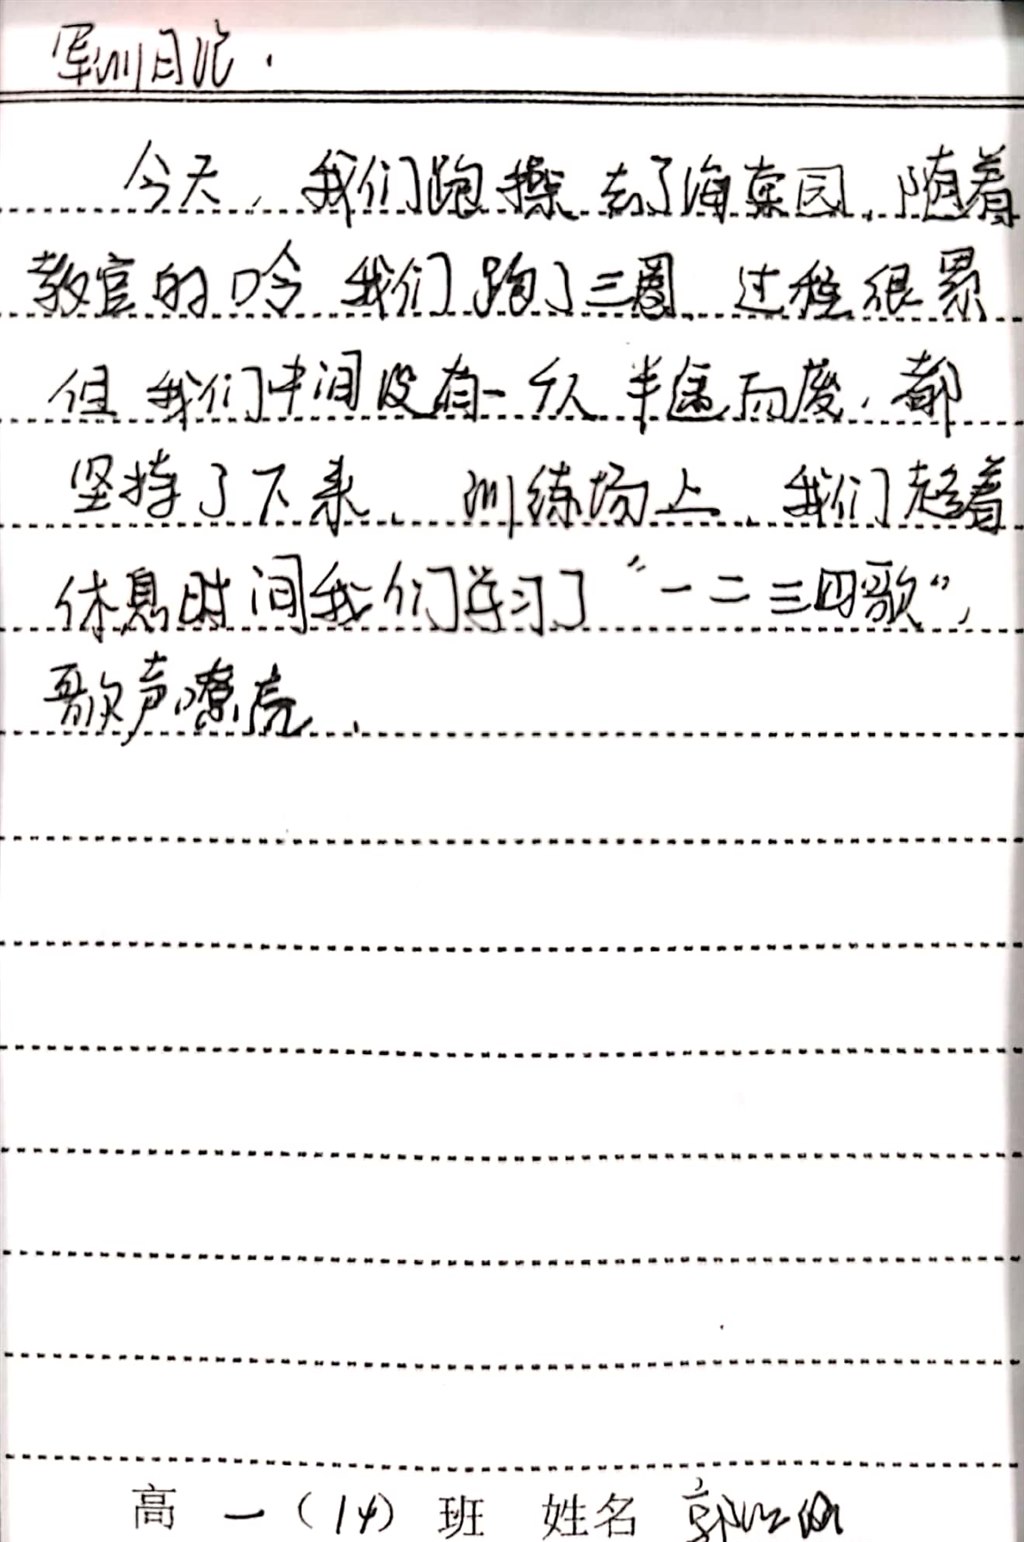 军训日记.
今天,我们跑操去了海棠园,随着
教官的口令 我们跑了三圈,过程很累
但我们中间没有一个人半途而废,都
坚持了下来、训练场上,我们趁着
休息时间我们学习了“一二三四歌”,
歌声嘹亮.
高一(14)班 姓名 郭